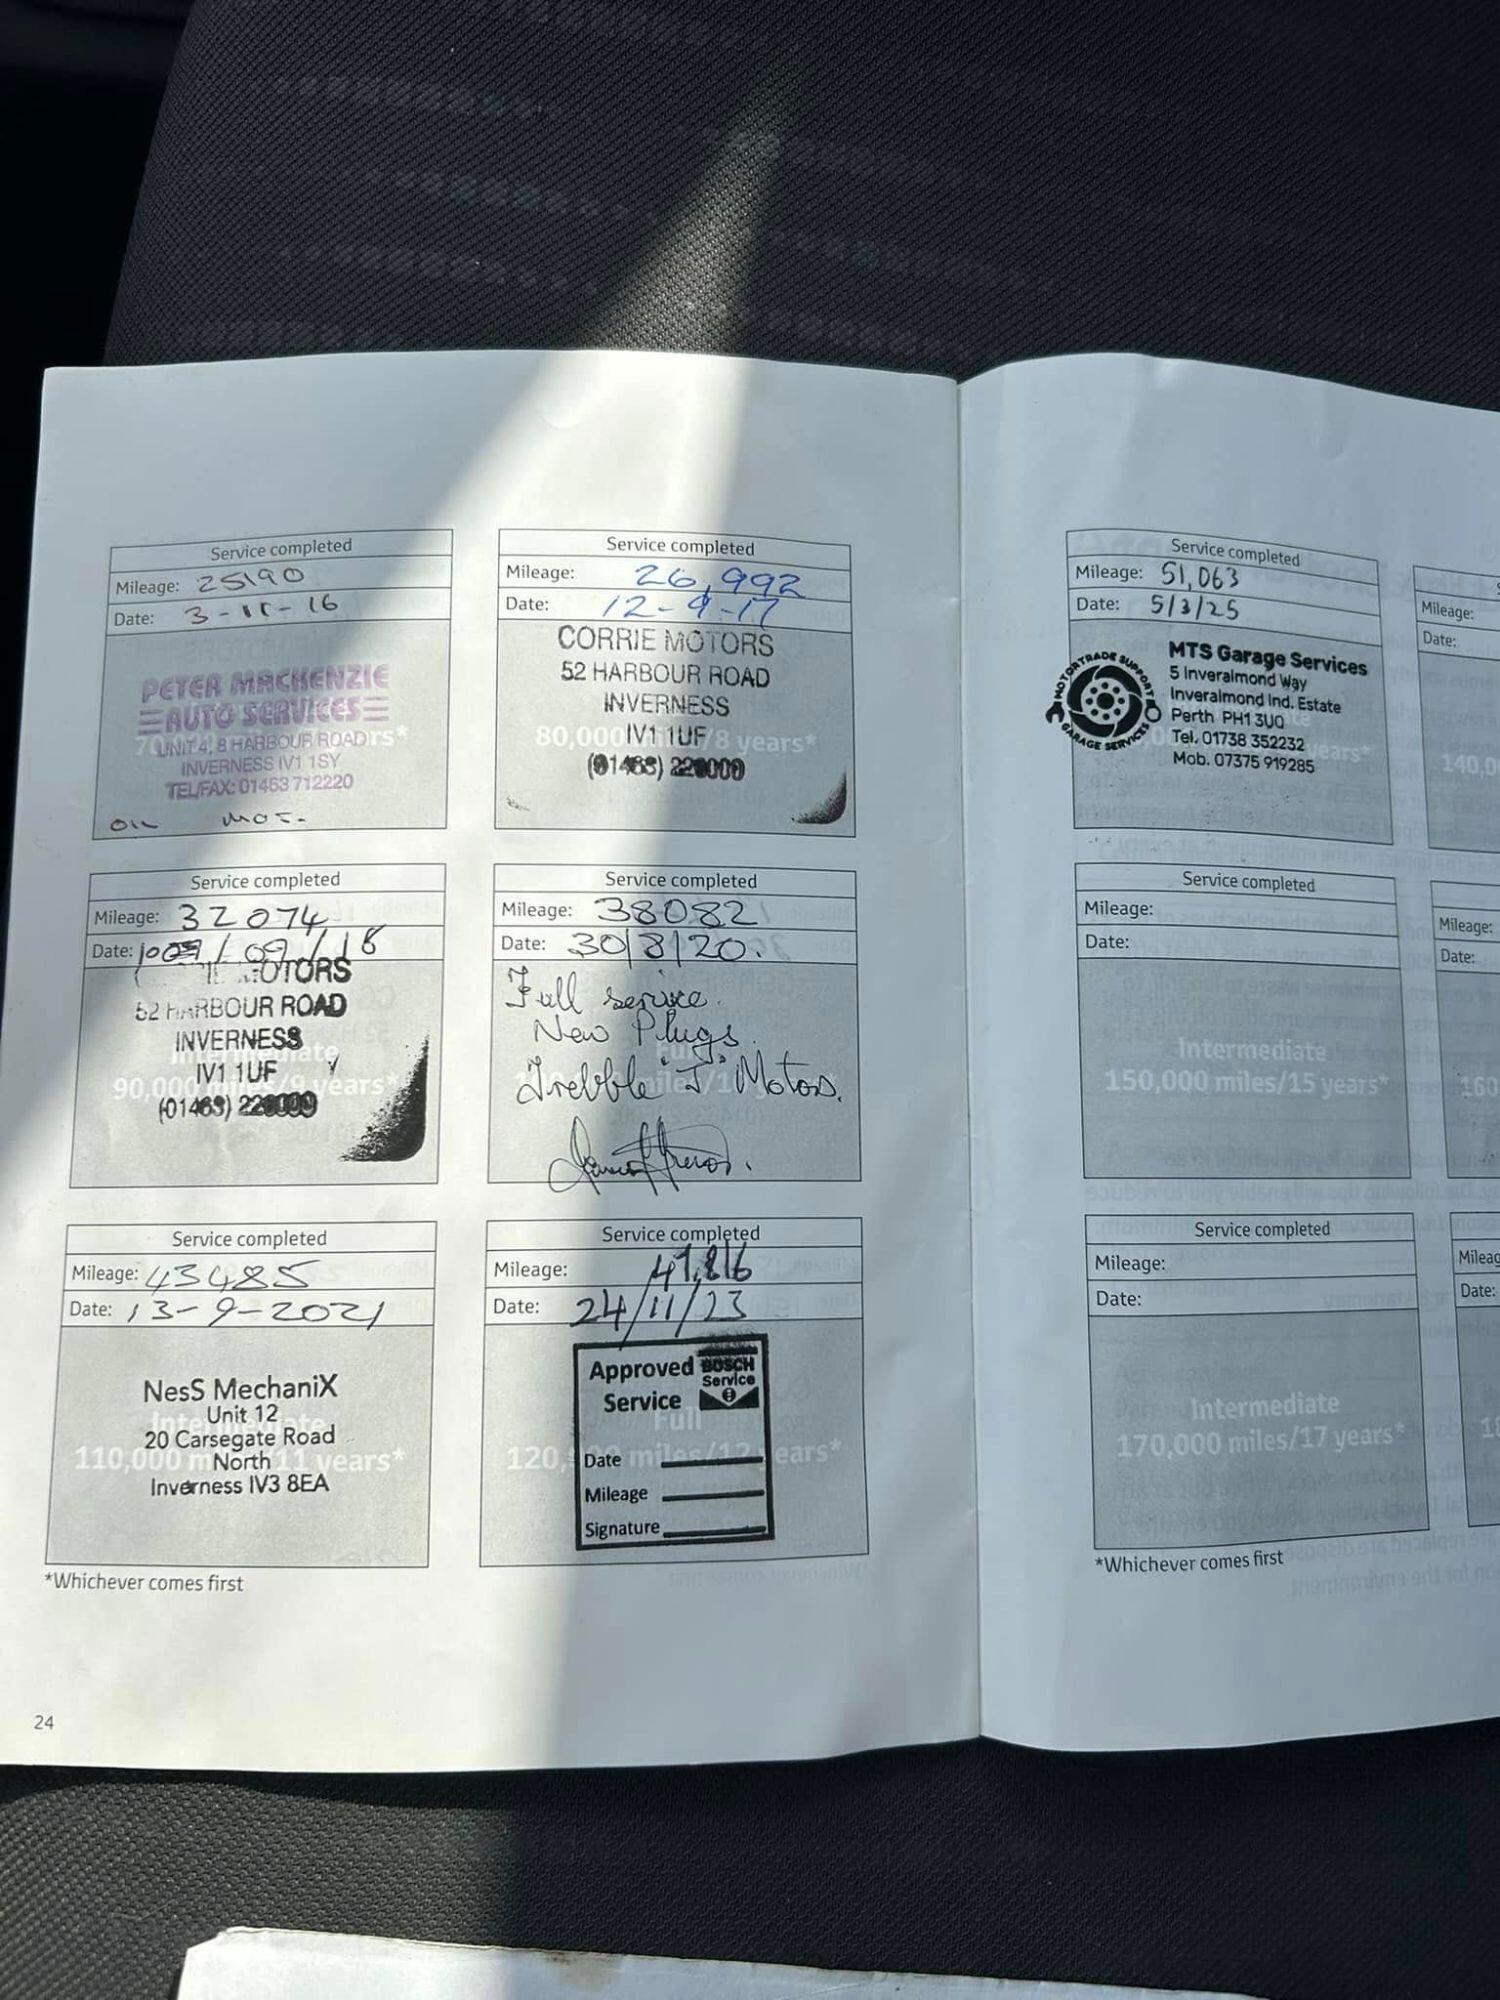 Service completed
Mileage: 25190
Date: 3-11-16
PETER MACKENZIE
AUTO SERVICES
UNIT 4, 8 HARBOUR ROAD
INVERNESS IV1 1SY
TEL/FAX: 01463 712220
OIL MOT.
Service completed
Mileage: 26,992
Date: 12-9-17
CORRIE MOTORS
52 HARBOUR ROAD
INVERNESS
IV1 1UF
80,000 miles/8 years*
(01463)
Service completed
Mileage: 32074
Date: /09/18
MOTORS
52 HARBOUR ROAD
INVERNESS
Intermediate
IV1 1UF
90,000 miles/9 years*
(01463)
Service completed
Mileage: 38082
Date: 30/8/20.
Full service.
New Plugs.
Trebble "J" Motors.
Service completed
Mileage: 43485
Date: 13-9-2021
NesS MechaniX
Unit 12
20 Carsegate Road
North
Inverness IV3 8EA
Intermediate
110,000 miles/11 years*
Service completed
Mileage: 47,816
Date: 24/11/23
Approved
Service
BOSCH
Service
Full
120,000 miles/12 years*
Date
Mileage
Signature
*Whichever comes first
24
Service completed
Mileage: 51,063
Date: 5/3/25
MOTORTRADE SUPPORT
GARAGE SERVICES
MTS Garage Services
5 Inveralmond Way
Inveralmond Ind. Estate
Perth PH1 3UQ
Tel. 01738 352232
Mob. 07375 919285
years*
Service completed
Mileage:
Date:
Intermediate
150,000 miles/15 years*
Service completed
Mileage:
Date:
Intermediate
170,000 miles/17 years*
*Whichever comes first
Mileage:
Date:
140,0
Mileage:
Date:
160
Mileag
Date: